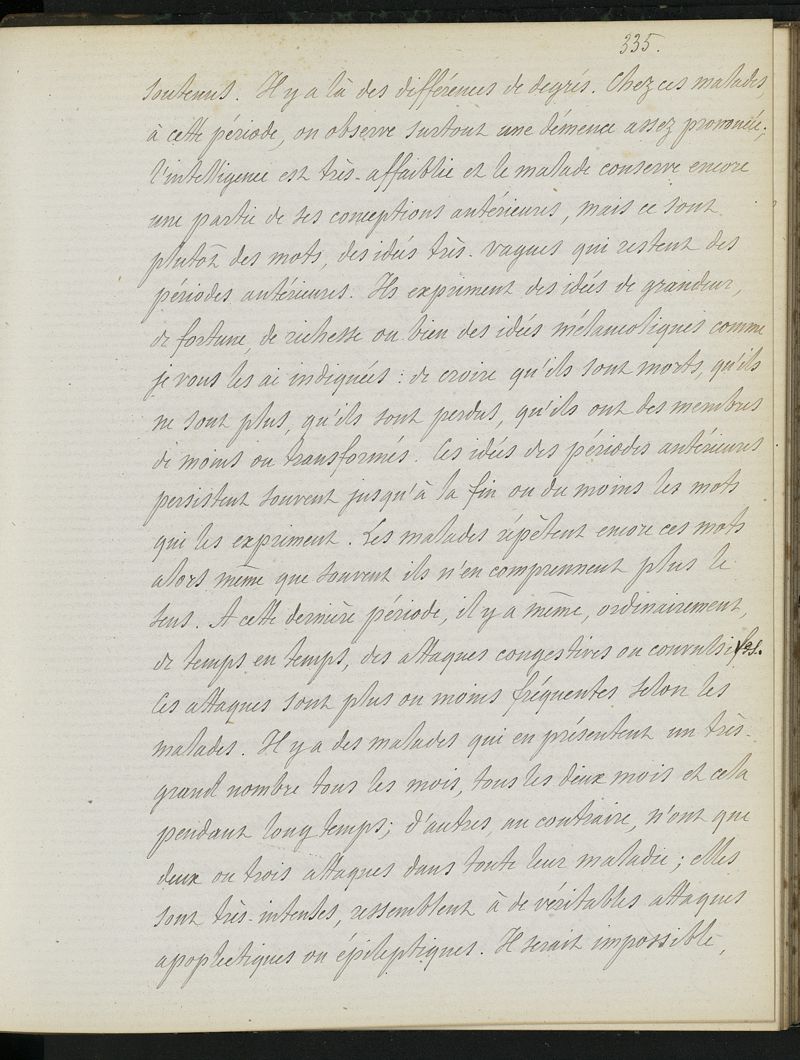 335.
soutenus. Il y a là des différences de degrés. Chez ces malades,
à cette période, on observe surtout une démence assez prononcée;
l'intelligence est très-affaiblie et le malade conserve encore
une partie de ses conceptions antérieures, mais ce sont
plutôt des mots, des idées très-vagues qui restent des
périodes antérieures. Ils expriment des idées de grandeur,
de fortune, de richesse ou bien des idées mélancoliques comme
je vous les ai indiquées : de croire qu'ils sont morts, qu'ils
ne sont plus, qu'ils sont perdus, qu'ils ont des membres
de moins ou transformés. Ces idées des périodes antérieures
persistent souvent jusqu'à la fin ou du moins les mots
qui les expriment. Les malades répètent encore ces mots
alors même que souvent ils n'en comprennent plus le
sens. A cette dernière période, il y a même, ordinairement,
de temps en temps, des attaques congestives ou convulsives.
Ces attaques sont plus ou moins fréquentes selon les
malades. Il y a des malades qui en présentent un très-
grand nombre tous les mois, tous les deux mois et cela
pendant long temps; d'autres, au contraire, n'ont que
deux ou trois attaques dans toute leur maladie; elles
sont très-intenses, ressemblent à de véritables attaques
apoplectiques ou épileptiques. Il serait impossible,